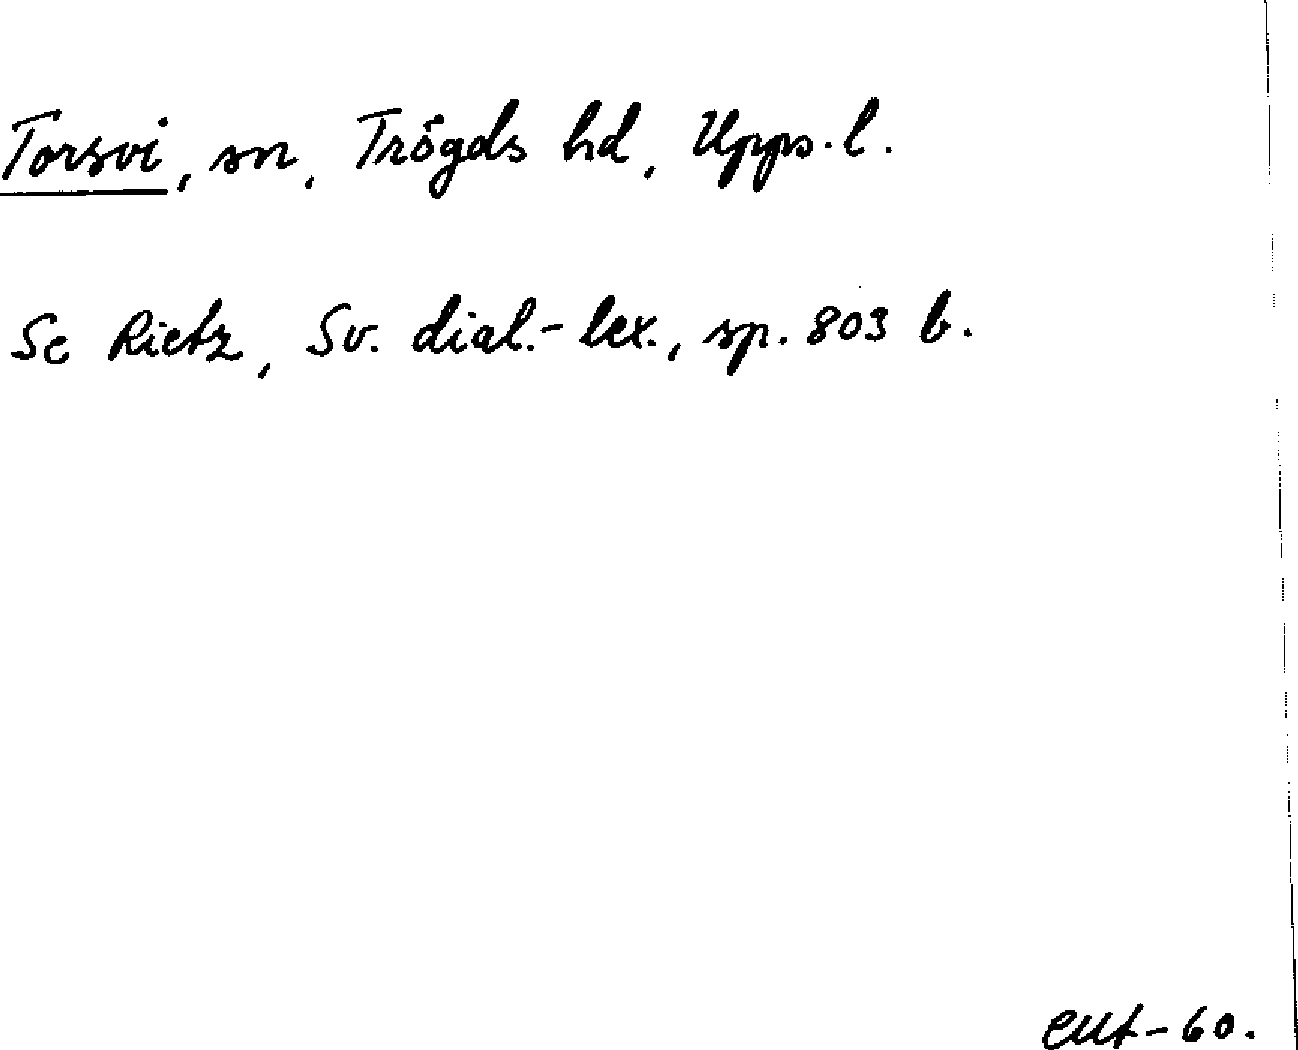 Torsvi, sn, Trögds hd, Upps. l.
Se Rietz, Sv. dial.-lex., sp. 803 b.
-60.